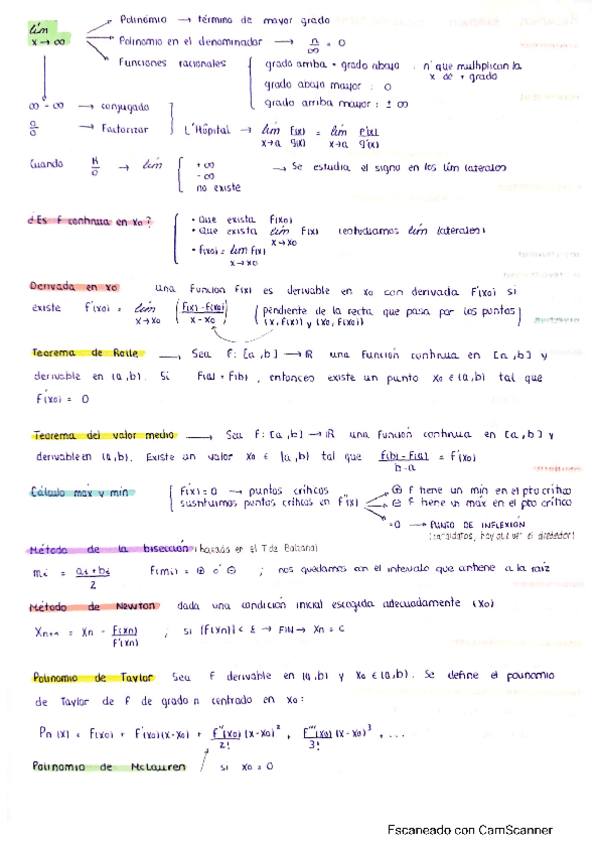 lím x → ∞
Polinomio → término de mayor grado
Polinomio en el denominador → n/∞ = 0
Funciones racionales
grado arriba = grado abajo : nº que multiplican la x de + grado
grado abajo mayor : 0
grado arriba mayor : ± ∞
∞ - ∞ → conjugado
0/0 → Factorizar
L'Hôpital → lím x→a F(x)/g(x) = lím x→a F'(x)/g'(x)
Cuando K/0 → lím
+ ∞
- ∞
no existe
→ Se estudia el signo en los lím laterales
¿Es F continua en x0?
• Que exista F(x0)
• Que exista lím x→x0 F(x) (estudiamos lím laterales)
• F(x0) = lím x→x0 F(x)
Derivada en x0 Una Función F(x) es derivable en x0 con derivada F'(x0) si
existe F'(x0) = lím x→x0 (F(x) - F(x0) / x - x0) (pendiente de la recta que pasa por los puntos (x, F(x)) y (x0, F(x0))
Teorema de Rolle → Sea F: [a, b] → ℝ una Función continua en [a, b] y
derivable en (a, b). Si F(a) = F(b), entonces existe un punto x0 ∈ (a, b) tal que
F'(x0) = 0
Teorema del valor medio → Sea F: [a, b] → ℝ una Función continua en [a, b] y
derivable en (a, b). Existe un valor x0 ∈ (a, b) tal que F(b) - F(a) / b-a = F'(x0)
Cálculo máx y mín
F'(x) = 0 → puntos críticos
sustituimos puntos críticos en F''(x)
⊕ F tiene un mín en el pto crítico
⊖ F tiene un máx en el pto crítico
=0 → PUNTO DE INFLEXIÓN
(candidatos, hay que ver el alrededor)
Método de la bisección (basada en el T de Bolzano)
mi = ai + bi / 2 F(mi) = ⊕ ó ⊖ ; nos quedamos con el intervalo que contiene a la raíz
Método de Newton dada una condición inicial escogida adecuadamente (x0)
Xn+1 = Xn - F(xn)/F'(xn) ; si |F(xn)| < ε → FIN → Xn = c
Polinomio de Taylor Sea F derivable en (a, b) y x0 ∈ (a, b). Se define el polinomio
de Taylor de F de grado n centrado en x0:
Pn (x) = F(x0) + F'(x0)(x-x0) + F''(x0)/2! (x-x0)² + F'''(x0)/3! (x-x0)³ + ...
Polinomio de McLauren si x0 = 0
Escaneado con CamScanner